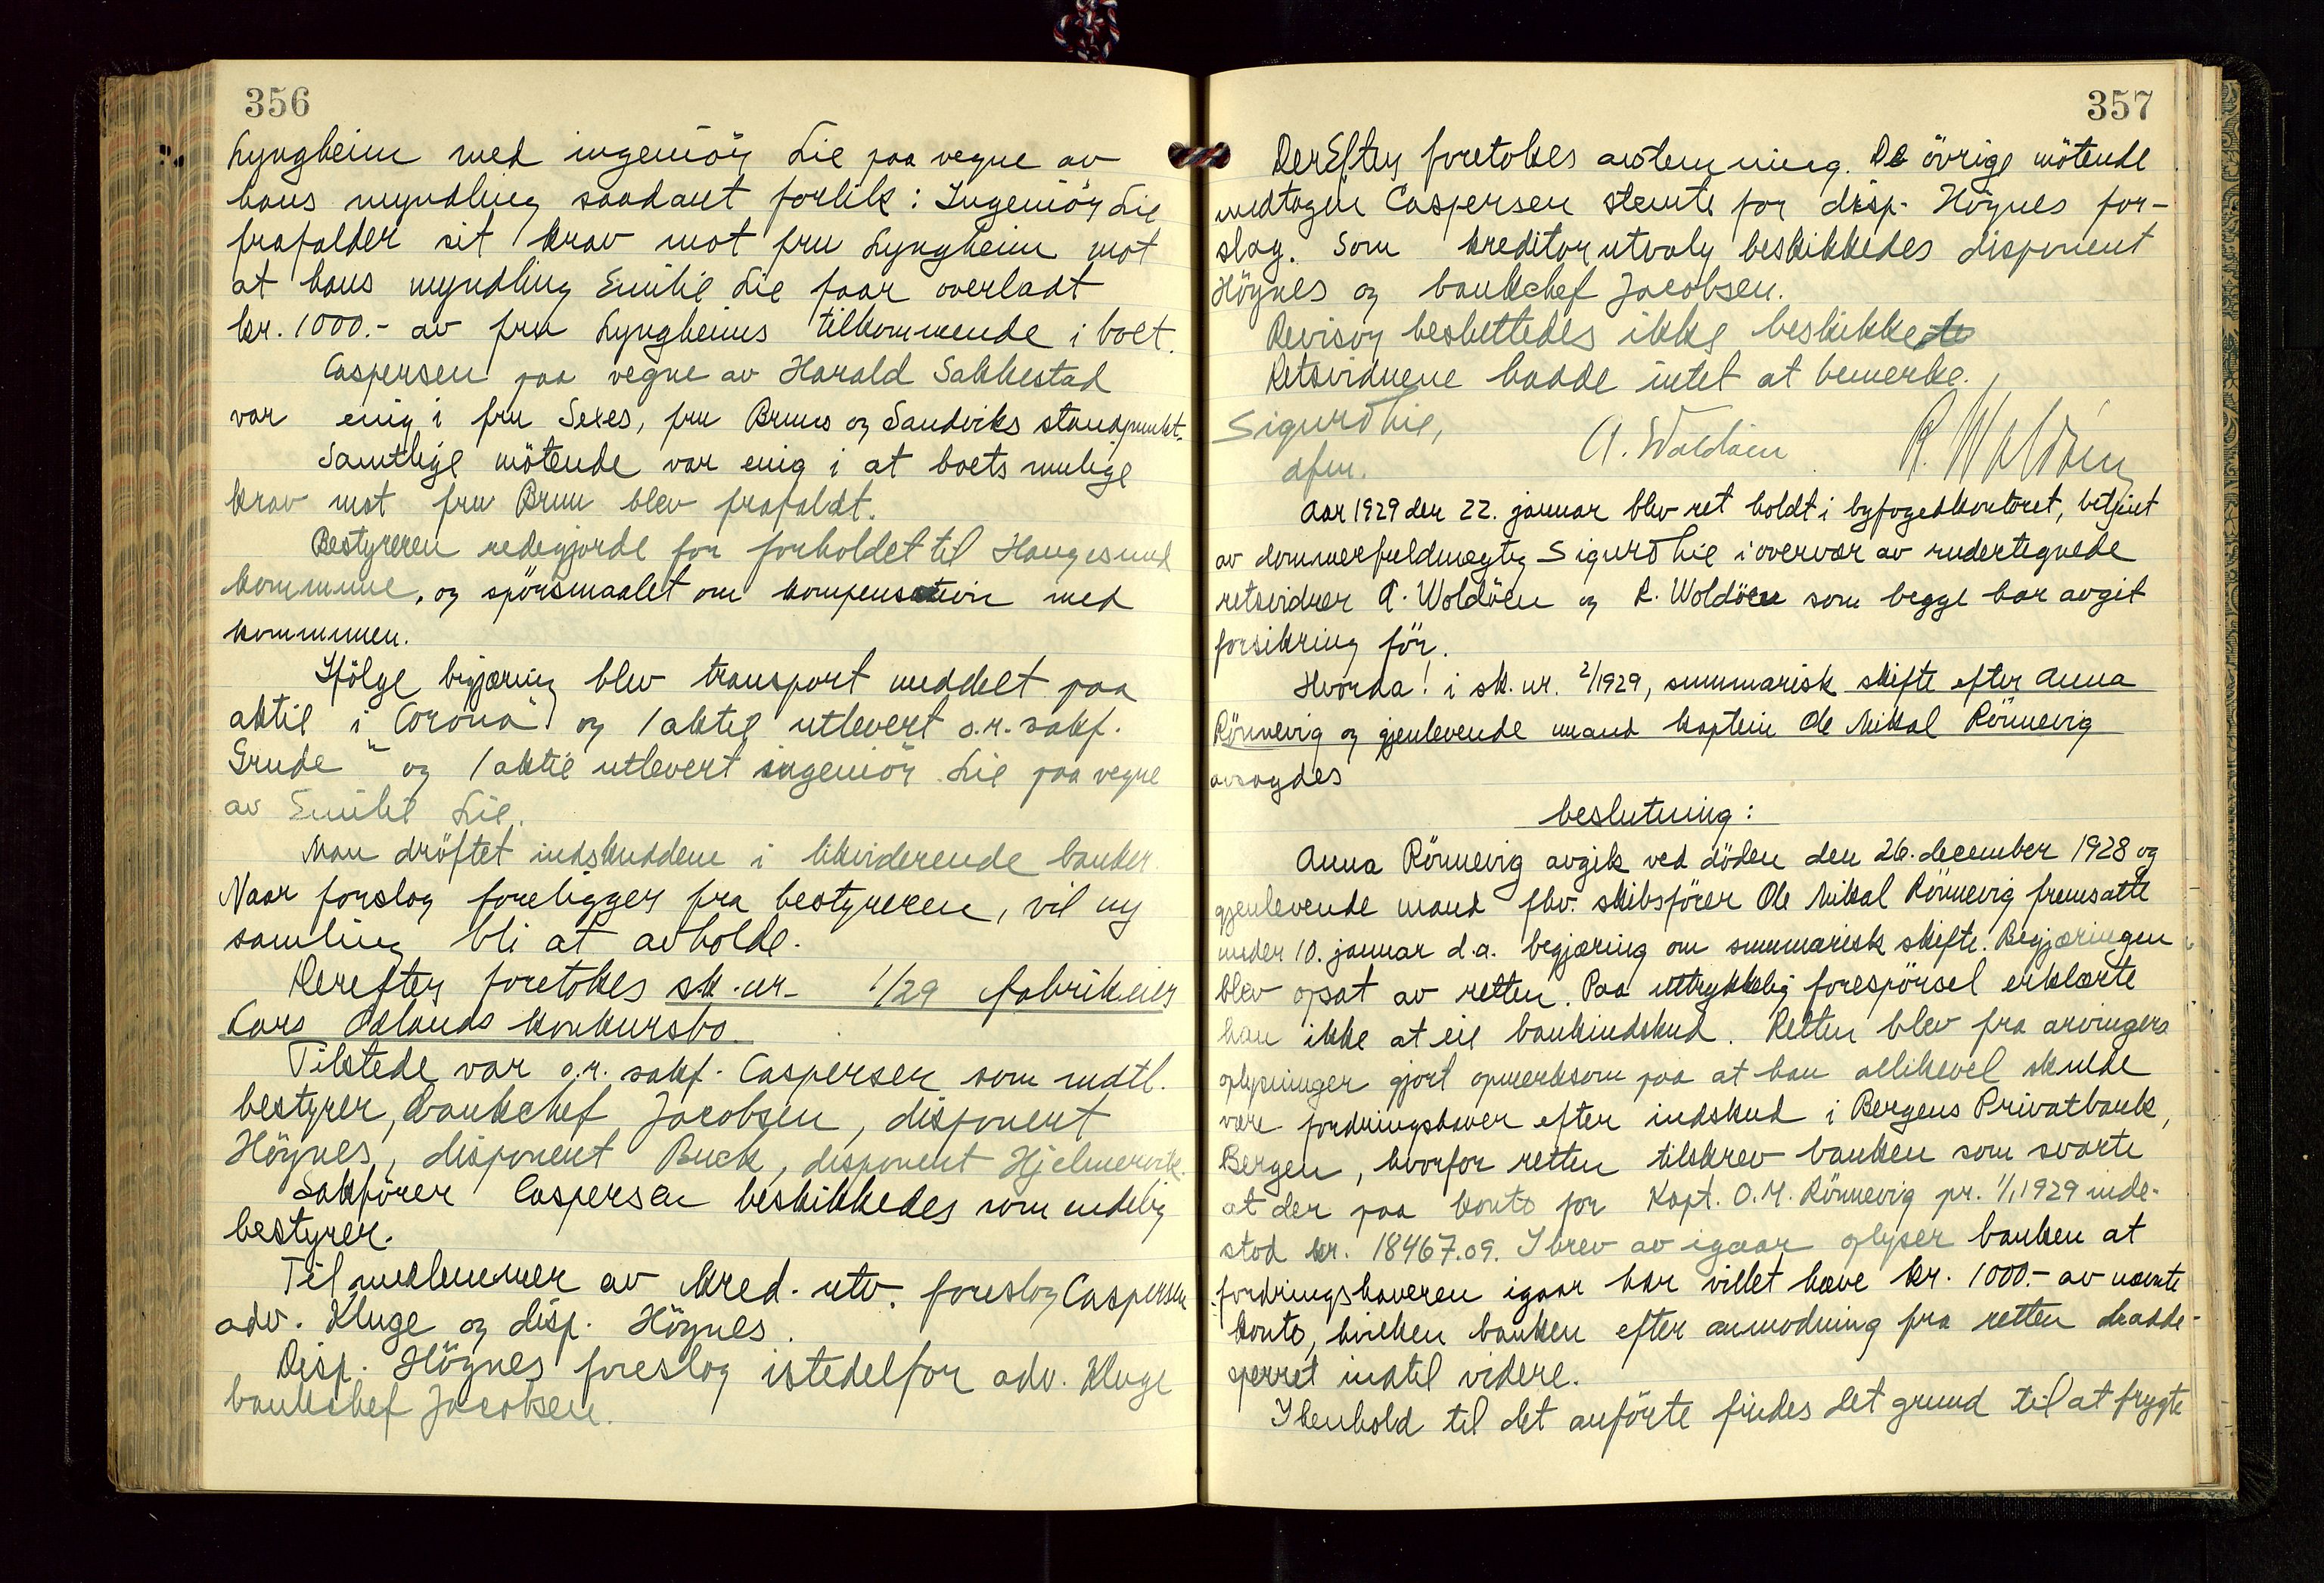 356
Lyngheim med ingeniör Lie paa vegne av
hans myndling saadant forlik: Ingeniör Lie
frafalder sit krav mot fru Lyngheim mot
at hans myndling Emilie Lie faar overladt
kr. 1000.- av fru Lyngheims tilkommende i boet.
Caspersen paa vegne av Harald Sakkestad
var enig i fru Sexes, fru Bruns og Sandviks standpunkt.
Samtlige mötende var enig i at boets mulige
krav mot fru Brun blev frafaldt.
Bestyreren redegjorde for forholdet til Haugesund
kommune, og spörsmaalet om kompensation med
kommunen.
Ifölge begjæring blev transport meddelt paa
aktie i "Corona" og 1 aktie utlevert o.r. sakf.
Grude og 1 aktie utlevert ingeniör Lie paa vegne
av Emilie Lie.
Man dröftet indskuddene i likviderende banker.
Naar forslag foreligger fra bestyreren, vil ny
samling bli at avholde.
Derefter foretokes sk. nr. 1/29 fabrikeier
Lars Ødlands konkursbo.
Tilstede var o.r. sakf. Caspersen som mdtl.
bestyrer, bankchef Jacobsen, disponent
Höynes, disponent Buck, disponent Hjelmervik.
Sakförer Caspersen beskikkedes som endelig
bestyrer.
Til medlemmer av kred. utv. foreslog Caspersen
adv. Kluge og disp. Höynes.
Disp. Höynes foreslog istedetfor adv. Kluge
bankchef Jacobsen.
357
DerEfter foretokes avstemning. De övrige mötende
undtagen Caspersen stemte for disp. Höynes for-
slag. Som kreditorutvalg beskikkedes disponent
Höynes og bankchef Jacobsen.
Revisor besluttedes ikke beskikkede
Retsvidnene hadde intet at bemerke.
Sigurd Lie,
dfm.
A. Waldöen
R. Waldöen
Aar 1929 den 22. januar blev ret holdt i byfogedkontoret, betjent
av dommerfuldmegtig Sigurd Lie i overvær av undertegnede
retsvidner A. Woldöen og R. Woldöen som begge har avgit
forsikring för.
Hvorda! i sk. nr. 2/1929, summarisk skifte efter Anna
Rönnevig og gjenlevende mand kaptein Ole Mikal Rönnevig
avsagdes
beslutning:
Anna Rönnevig avgik ved döden den 26. december 1928 og
gjenlevende mand fhv. skibsförer Ole Mikal Rönnevig fremsatte
under 10. januar d.a. begjæring om summarisk skifte. Begjæringen
blev opsat av retten. Paa uttrykkelig forespörsel erklærte
han ikke at eie bankindskud. Retten blev fra arvingers
oplysninger gjort opmerksom paa at han allikevel skulde
være fordringshaver efter indskud i Bergens Privatbank,
Bergen, hvorfor retten tilskrev banken som svarte
at der paa konto for Kapt. O.M. Rönnevig pr. 1/1 1929 inde-
stod kr. 18467.09. I brev av igaar oplyser banken at
fordringshaveren igaar har villet hæve kr. 1000.- av nævnte
konto, hvilken banken efter anmodning fra retten hadde
sperret indtil videre.
I henhold til det anförte findes det grund til at frygte